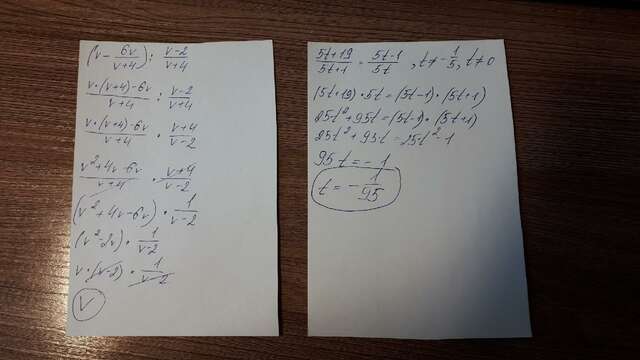 (v - 6v/(v+4)) : (v-2)/(v+4)
(v·(v+4)-6v)/(v+4) : (v-2)/(v+4)
(v·(v+4)-6v)/(v+4) · (v+4)/(v-2)
(v²+4v-6v)/(v+4) · (v+4)/(v-2)
(v²+4v-6v) · 1/(v-2)
(v²-2v) · 1/(v-2)
v·(v-2) · 1/(v-2)
v
(5t+19)/(5t+1) = (5t-1)/(5t), t≠-1/5, t≠0
(5t+19)·5t=(5t-1)·(5t+1)
25t²+95t=(5t-1)·(5t+1)
25t²+95t=25t²-1
95t=-1
t=-1/95